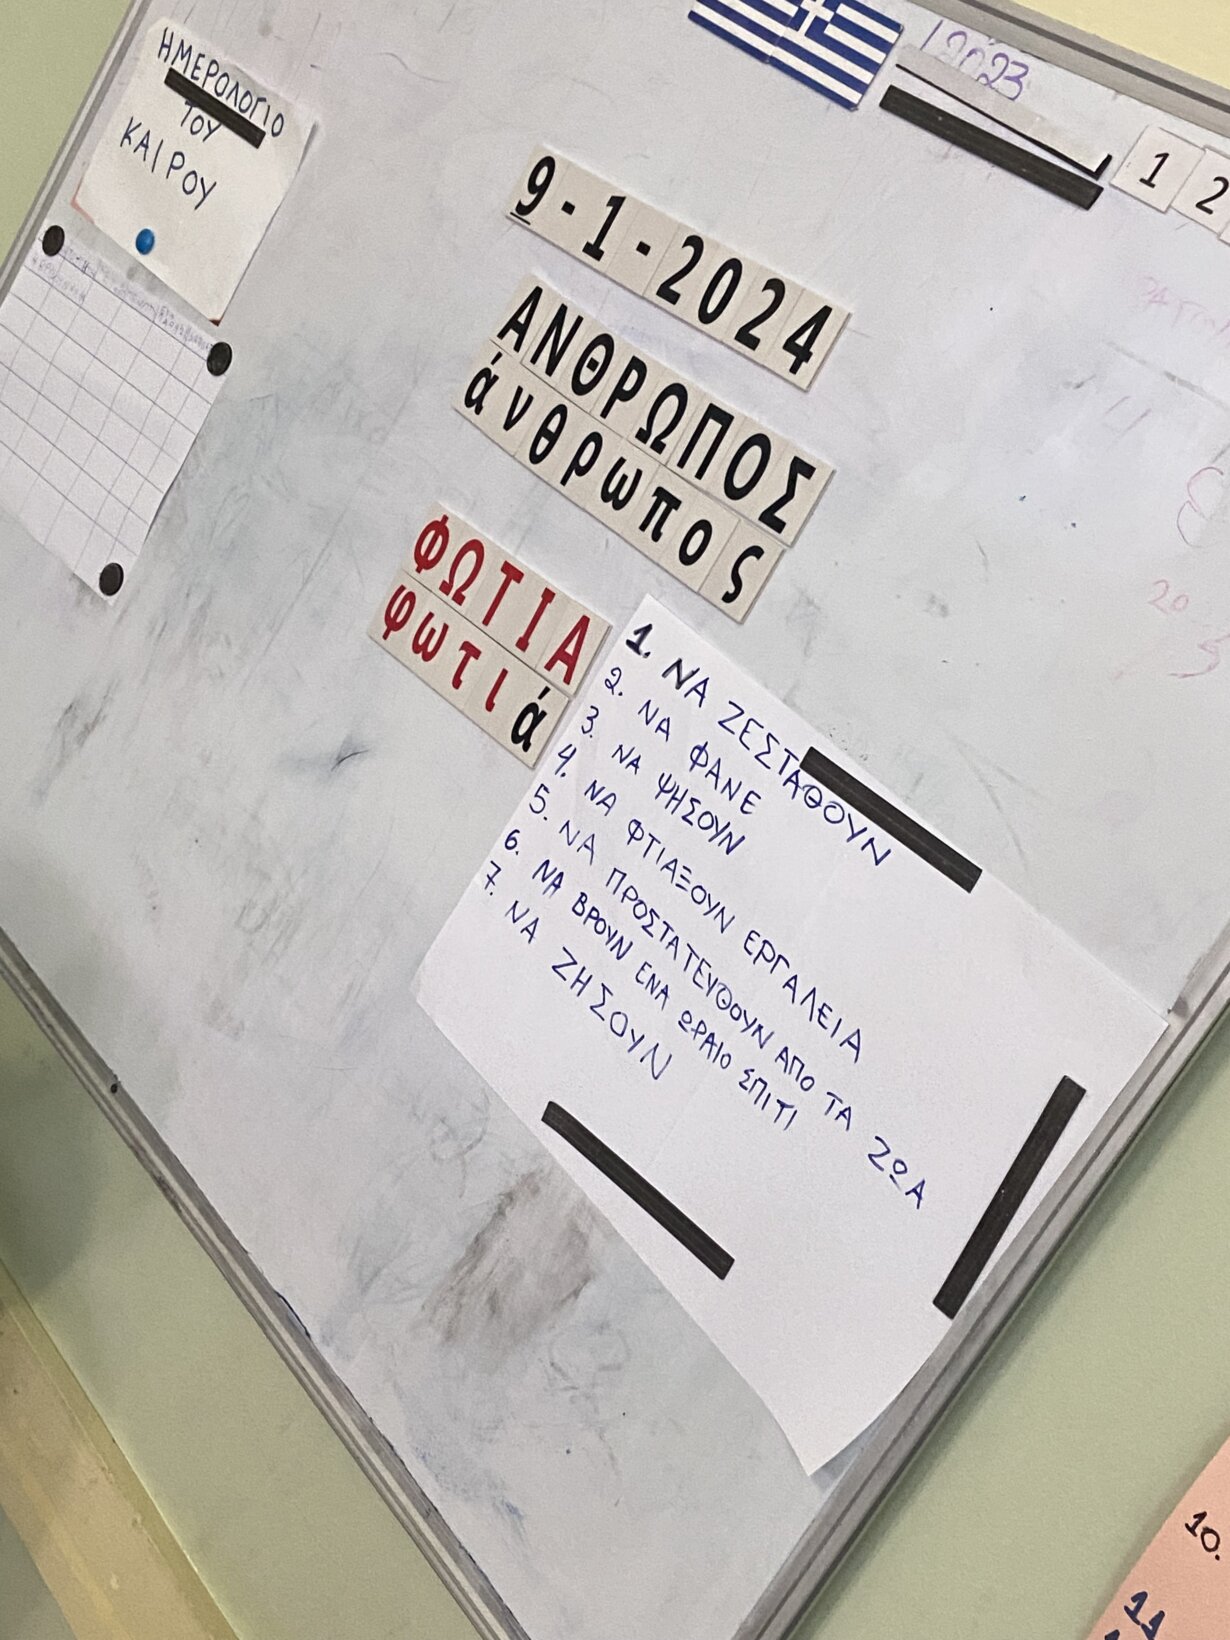 ΗΜΕΡΟΛΟΓΙΟ
ΤΟΥ
ΚΑΙΡΟΥ
2023
1 2
9-1-2024
ΑΝΘΡΩΠΟΣ
άνθρωπος
ΦΩΤΙΑ
φωτιά
1. ΝΑ ΖΕΣΤΑΘΟΥΝ
2. ΝΑ ΦΑΝΕ
3. ΝΑ ΨΗΣΟΥΝ
4. ΝΑ ΦΤΙΑΞΟΥΝ ΕΡΓΑΛΕΙΑ
5. ΝΑ ΠΡΟΣΤΑΤΕΥΘΟΥΝ ΑΠΟ ΤΑ ΖΩΑ
6. ΝΑ ΒΡΟΥΝ ΕΝΑ ΩΡΑΙΟ ΣΠΙΤΙ
7. ΝΑ ΖΗΣΟΥΝ
20
5
10.
11